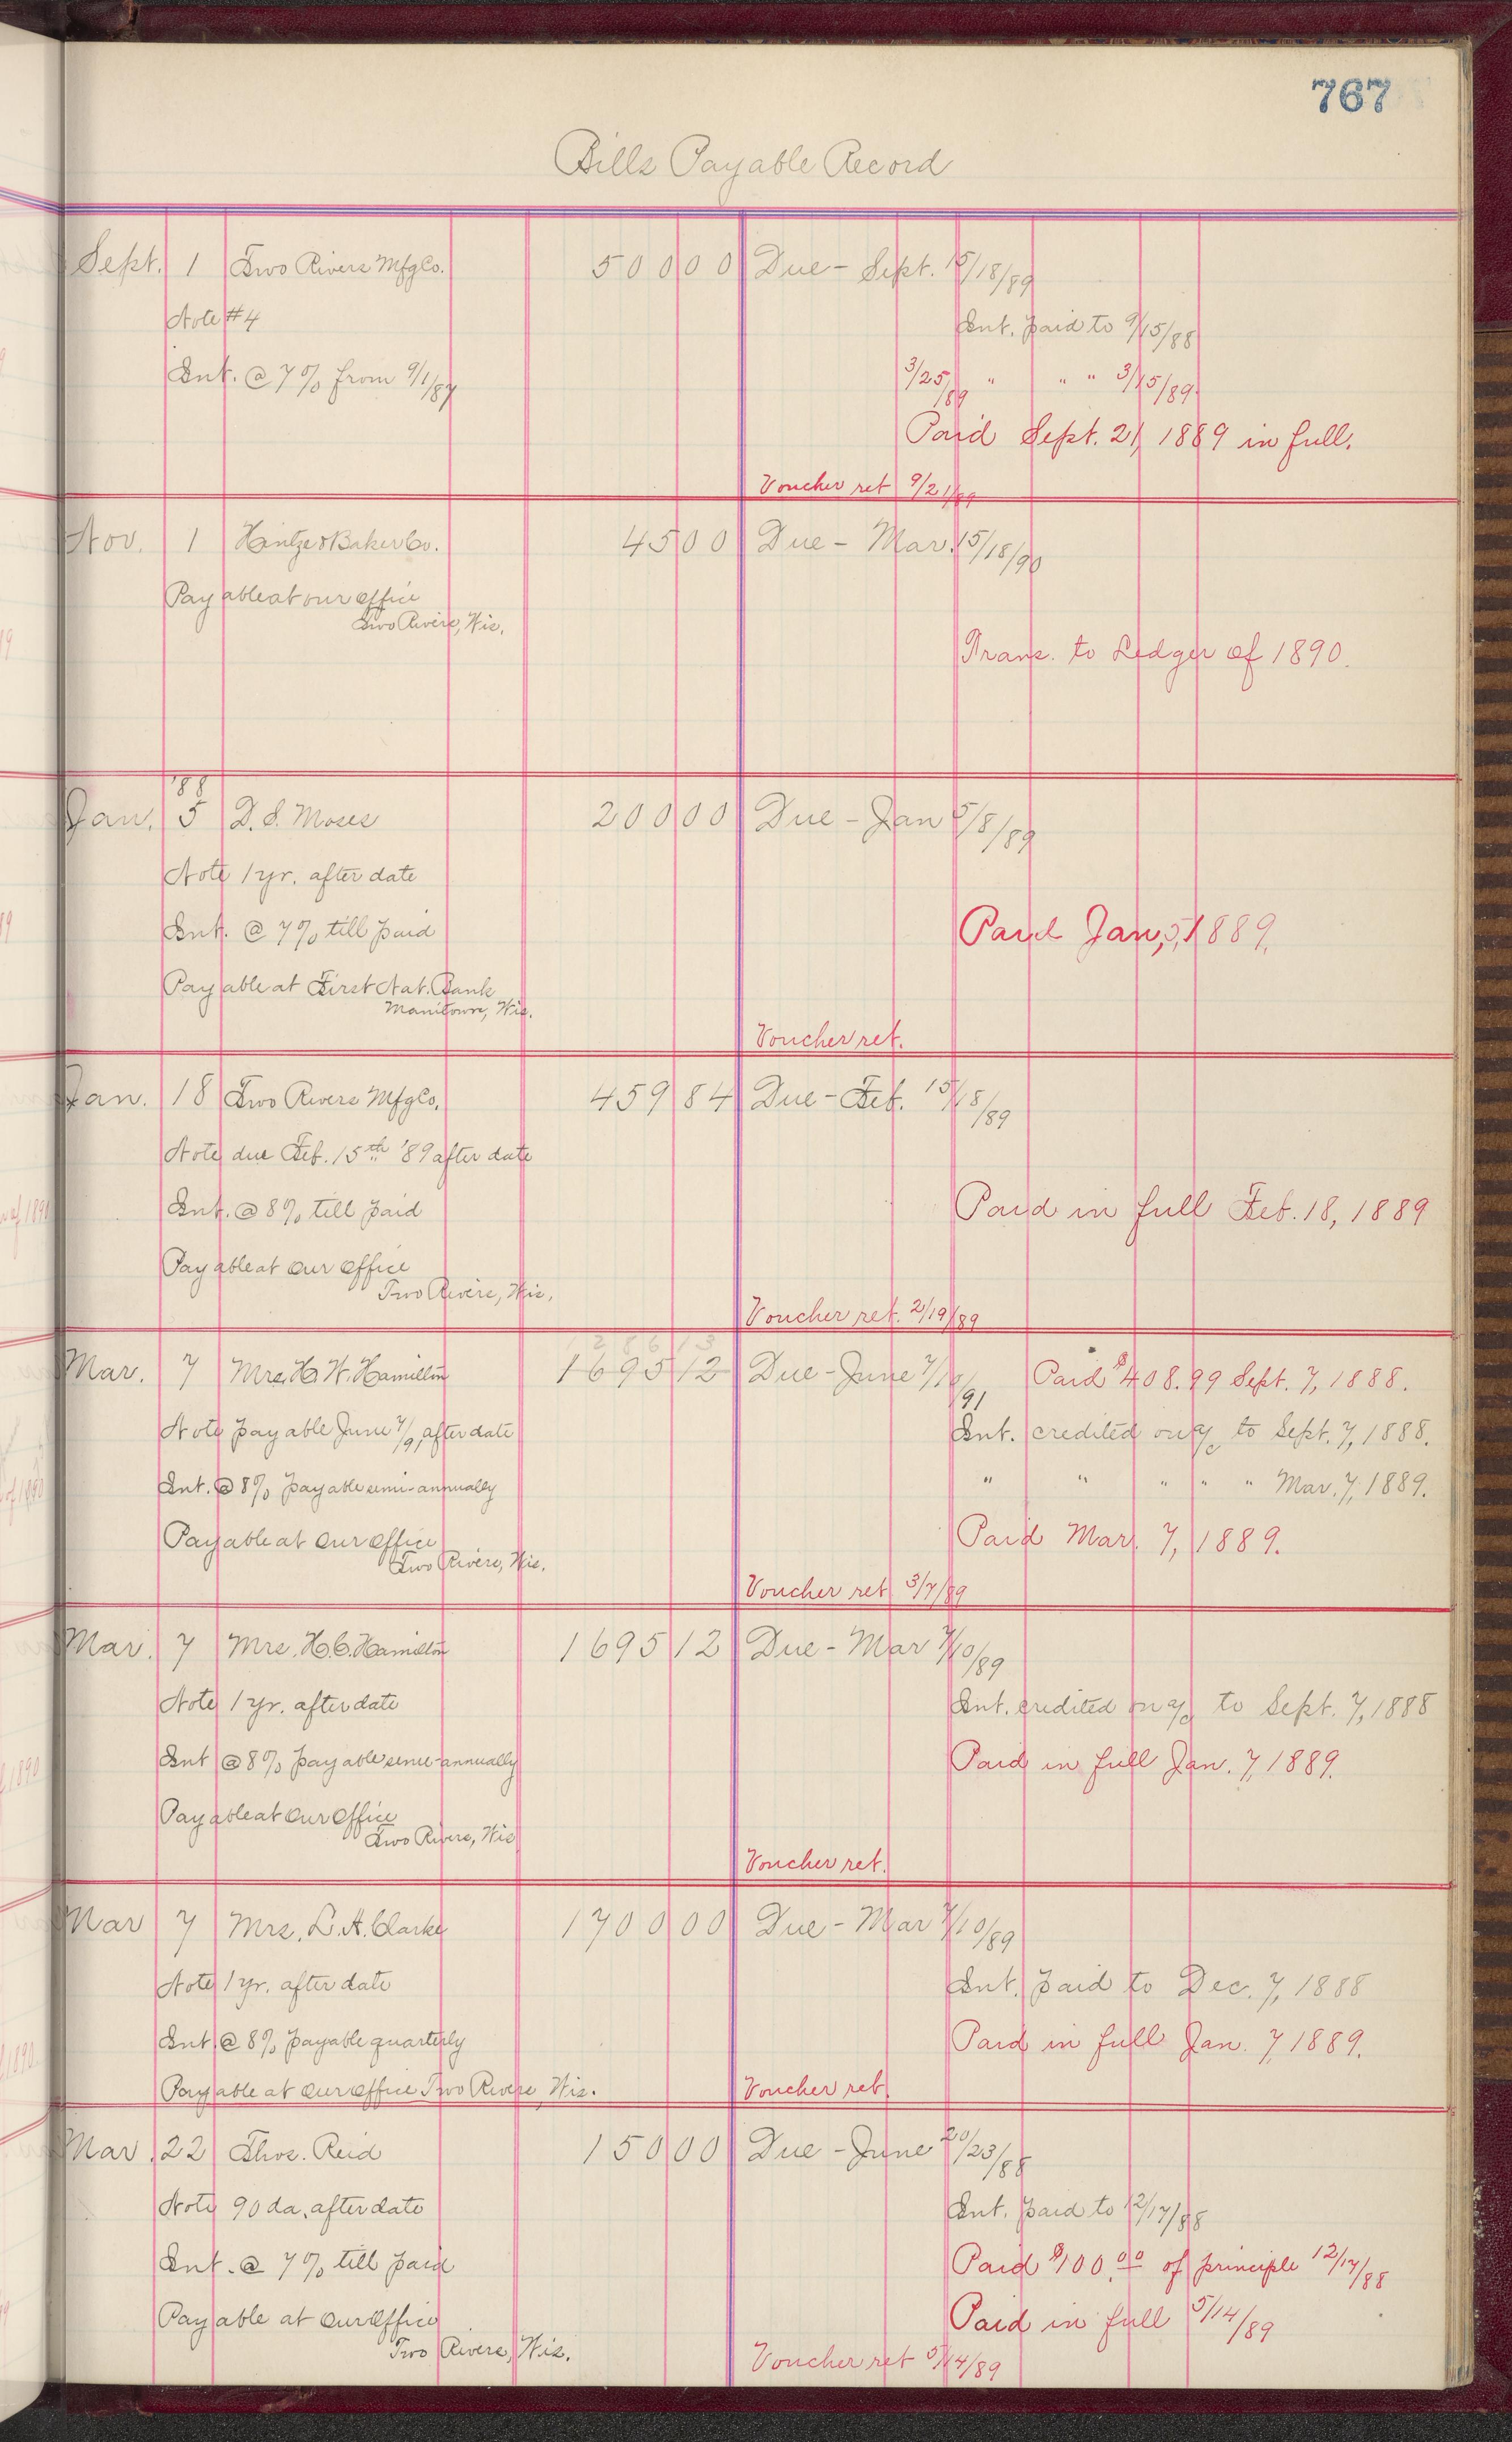 767
Bills Payable Record
Sept. 1 Two Rivers Mfg Co. 500 00 Due - Sept. 15/18/89
Note #4 Int. paid to 9/15/88
Int. @ 7% from 9/1/87 3/25/89 " " " 3/15/89.
Paid Sept. 21, 1889 in full.
Voucher ret 9/21/89
Nov. 1 Hintze & Baker Co. 45 00 Due - Mar. 15/18/90
Payable at our office
Two Rivers, Wis.
Trans. to Ledger of 1890.
'88
Jan. 5 D. S. Moses 200 00 Due - Jan 5/8/89
Note 1 yr. after date
Int. @ 7% till paid Paid Jan, 5, 1889.
Payable at First Nat. Bank
Manitowoc, Wis.
Voucher ret.
Jan. 18 Two Rivers Mfg Co. 459 84 Due - Feb. 15/18/89
Note due Feb. 15th '89 after date
Int. @ 8% till paid Paid in full Feb. 18, 1889
Payable at our office
Two Rivers, Wis.
Voucher ret. 2/19/89
1286 13
Mar. 7 Mrs. H. W. Hamilton 1695 12 Due - June 7/10/91 Paid $408.99 Sept. 7, 1888.
Note payable June 7/91 after date Int. credited on a/c to Sept. 7, 1888.
Int. @ 8% payable semi-annually " " " " " Mar. 7, 1889.
Payable at our office Paid Mar. 7, 1889.
Two Rivers, Wis.
Voucher ret 3/7/89
Mar. 7 Mrs. H. C. Hamilton 1695 12 Due - Mar 7/10/89
Note 1 yr. after date Int. credited on a/c to Sept. 7, 1888
Int @ 8% payable semi-annually Paid in full Jan. 7, 1889.
Payable at our office
Two Rivers, Wis
Voucher ret.
Mar 7 Mrs. L. A. Clarke 1700 00 Due - Mar 7/10/89
Note 1 yr. after date Int. paid to Dec. 7, 1888
Int. @ 8% payable quarterly Paid in full Jan. 7, 1889.
Payable at our office Two Rivers, Wis. Voucher ret.
Mar. 22 Thos. Reid 150 00 Due - June 20/23/88
Note 90 da. after date Int. paid to 12/17/88
Int. @ 7% till paid Paid $100.00 of principle 12/17/88
Payable at our office Paid in full 5/14/89
Two Rivers, Wis.
Voucher ret 5/14/89